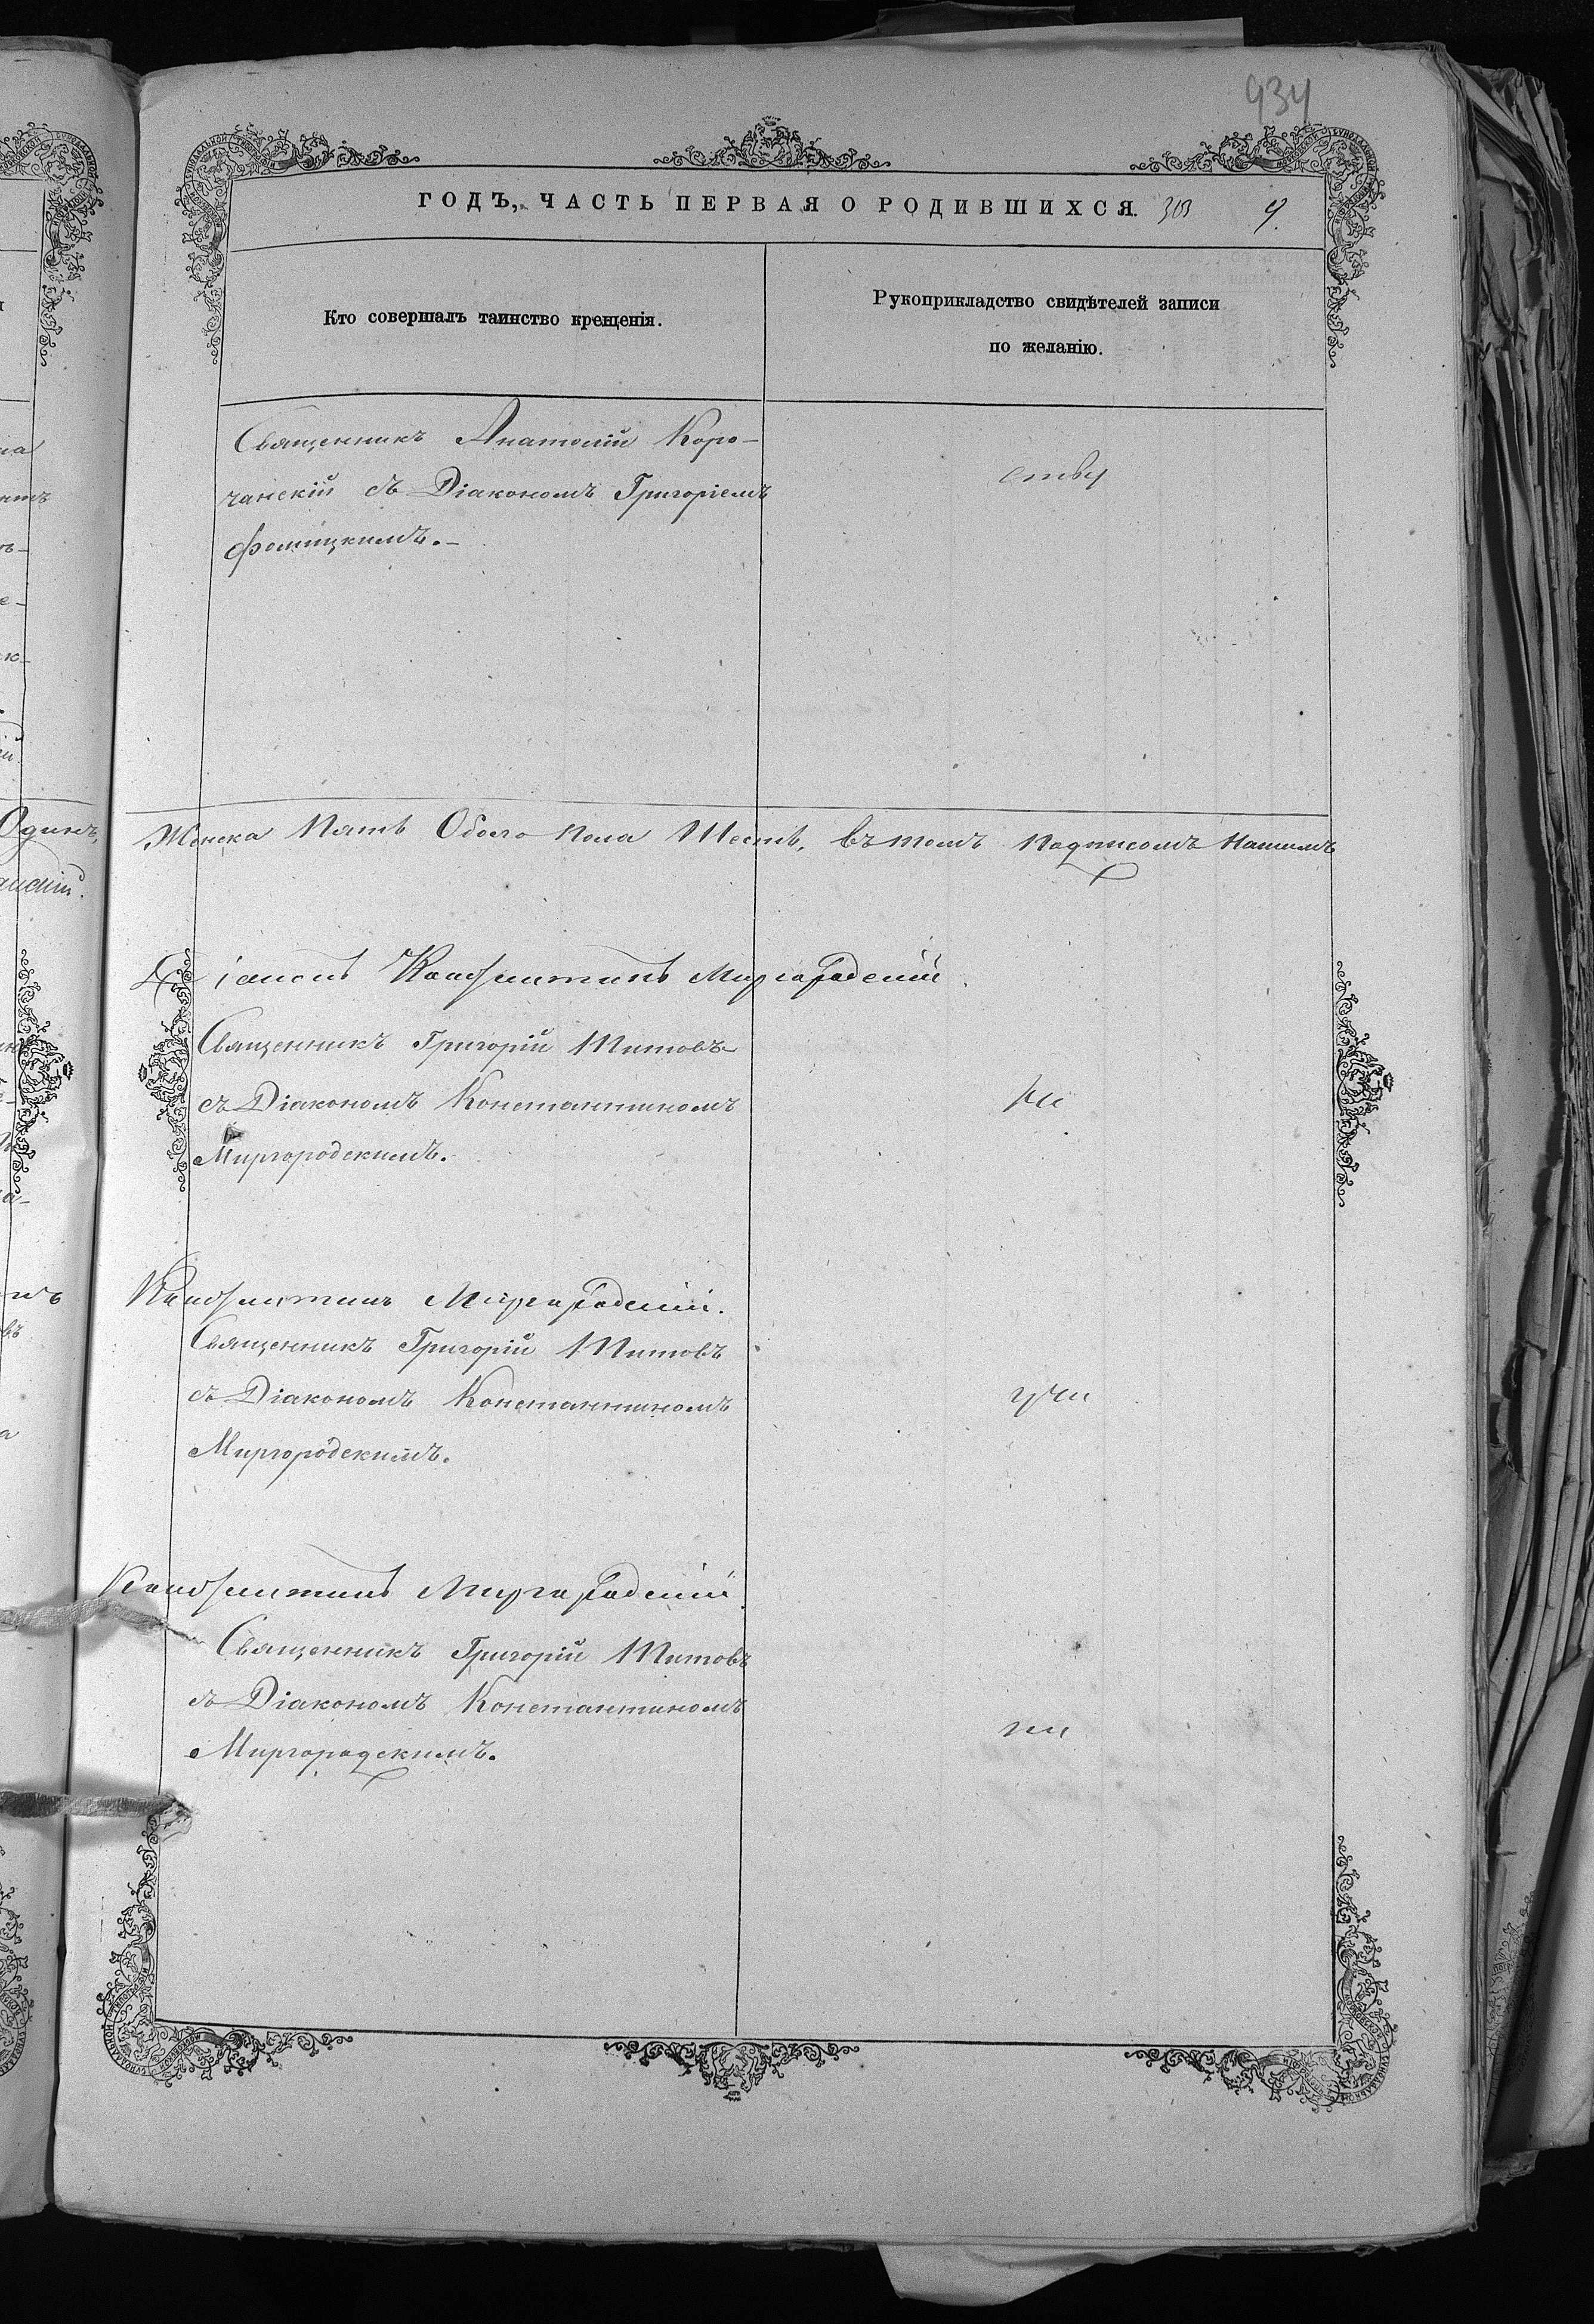 934
ГОДЪ, ЧАСТЬ ПЕРВАЯ О РОДИВШИХСЯ. 303 9.
Кто совершалъ таинство крещенія.
Рукоприкладство свидѣтелей записи
по желанію.
Священникъ Анатолій Коро-
чанскій съ Діакономъ Григоріемъ
Фомицкимъ.-
Женска Пять Обоего пола Шесть, въ томъ подписомъ нашимъ
Діаконъ Константинъ Миргородскій.
Священникъ Григорій Титовъ
съ Діакономъ Константиномъ
Миргородскимъ.
Константинъ Миргородскій.
Священникъ Григорій Титовъ
съ Діакономъ Константиномъ
Миргородскимъ.
Константинъ Миргородскій.
Священникъ Григорій Титовъ
съ Діакономъ Константиномъ
Миргородскимъ.
Одинъ,